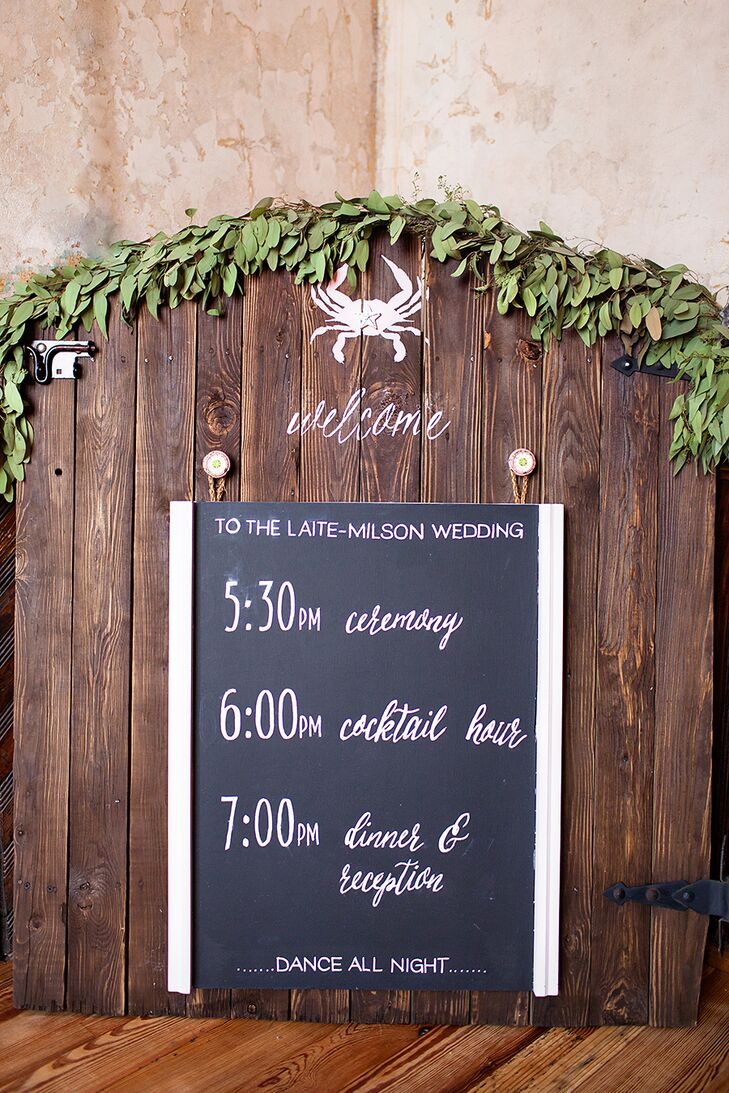 welcome
TO THE LAITE-MILSON WEDDING
5:30PM ceremony
6:00PM cocktail hour
7:00PM dinner &
reception
.......DANCE ALL NIGHT.......